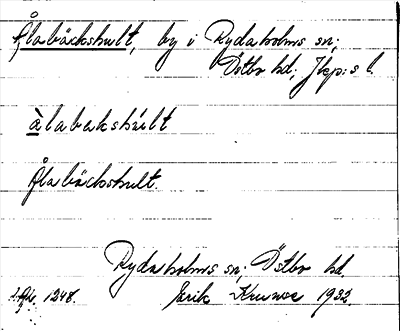 Ålabäckshult, by i Rydaholms sn;
Östbo hd; Jkp:s l.
àlabakshùlt
Ålabäckshult.
Rydaholms sn; Östbo hd.
1248. Erik 1932.